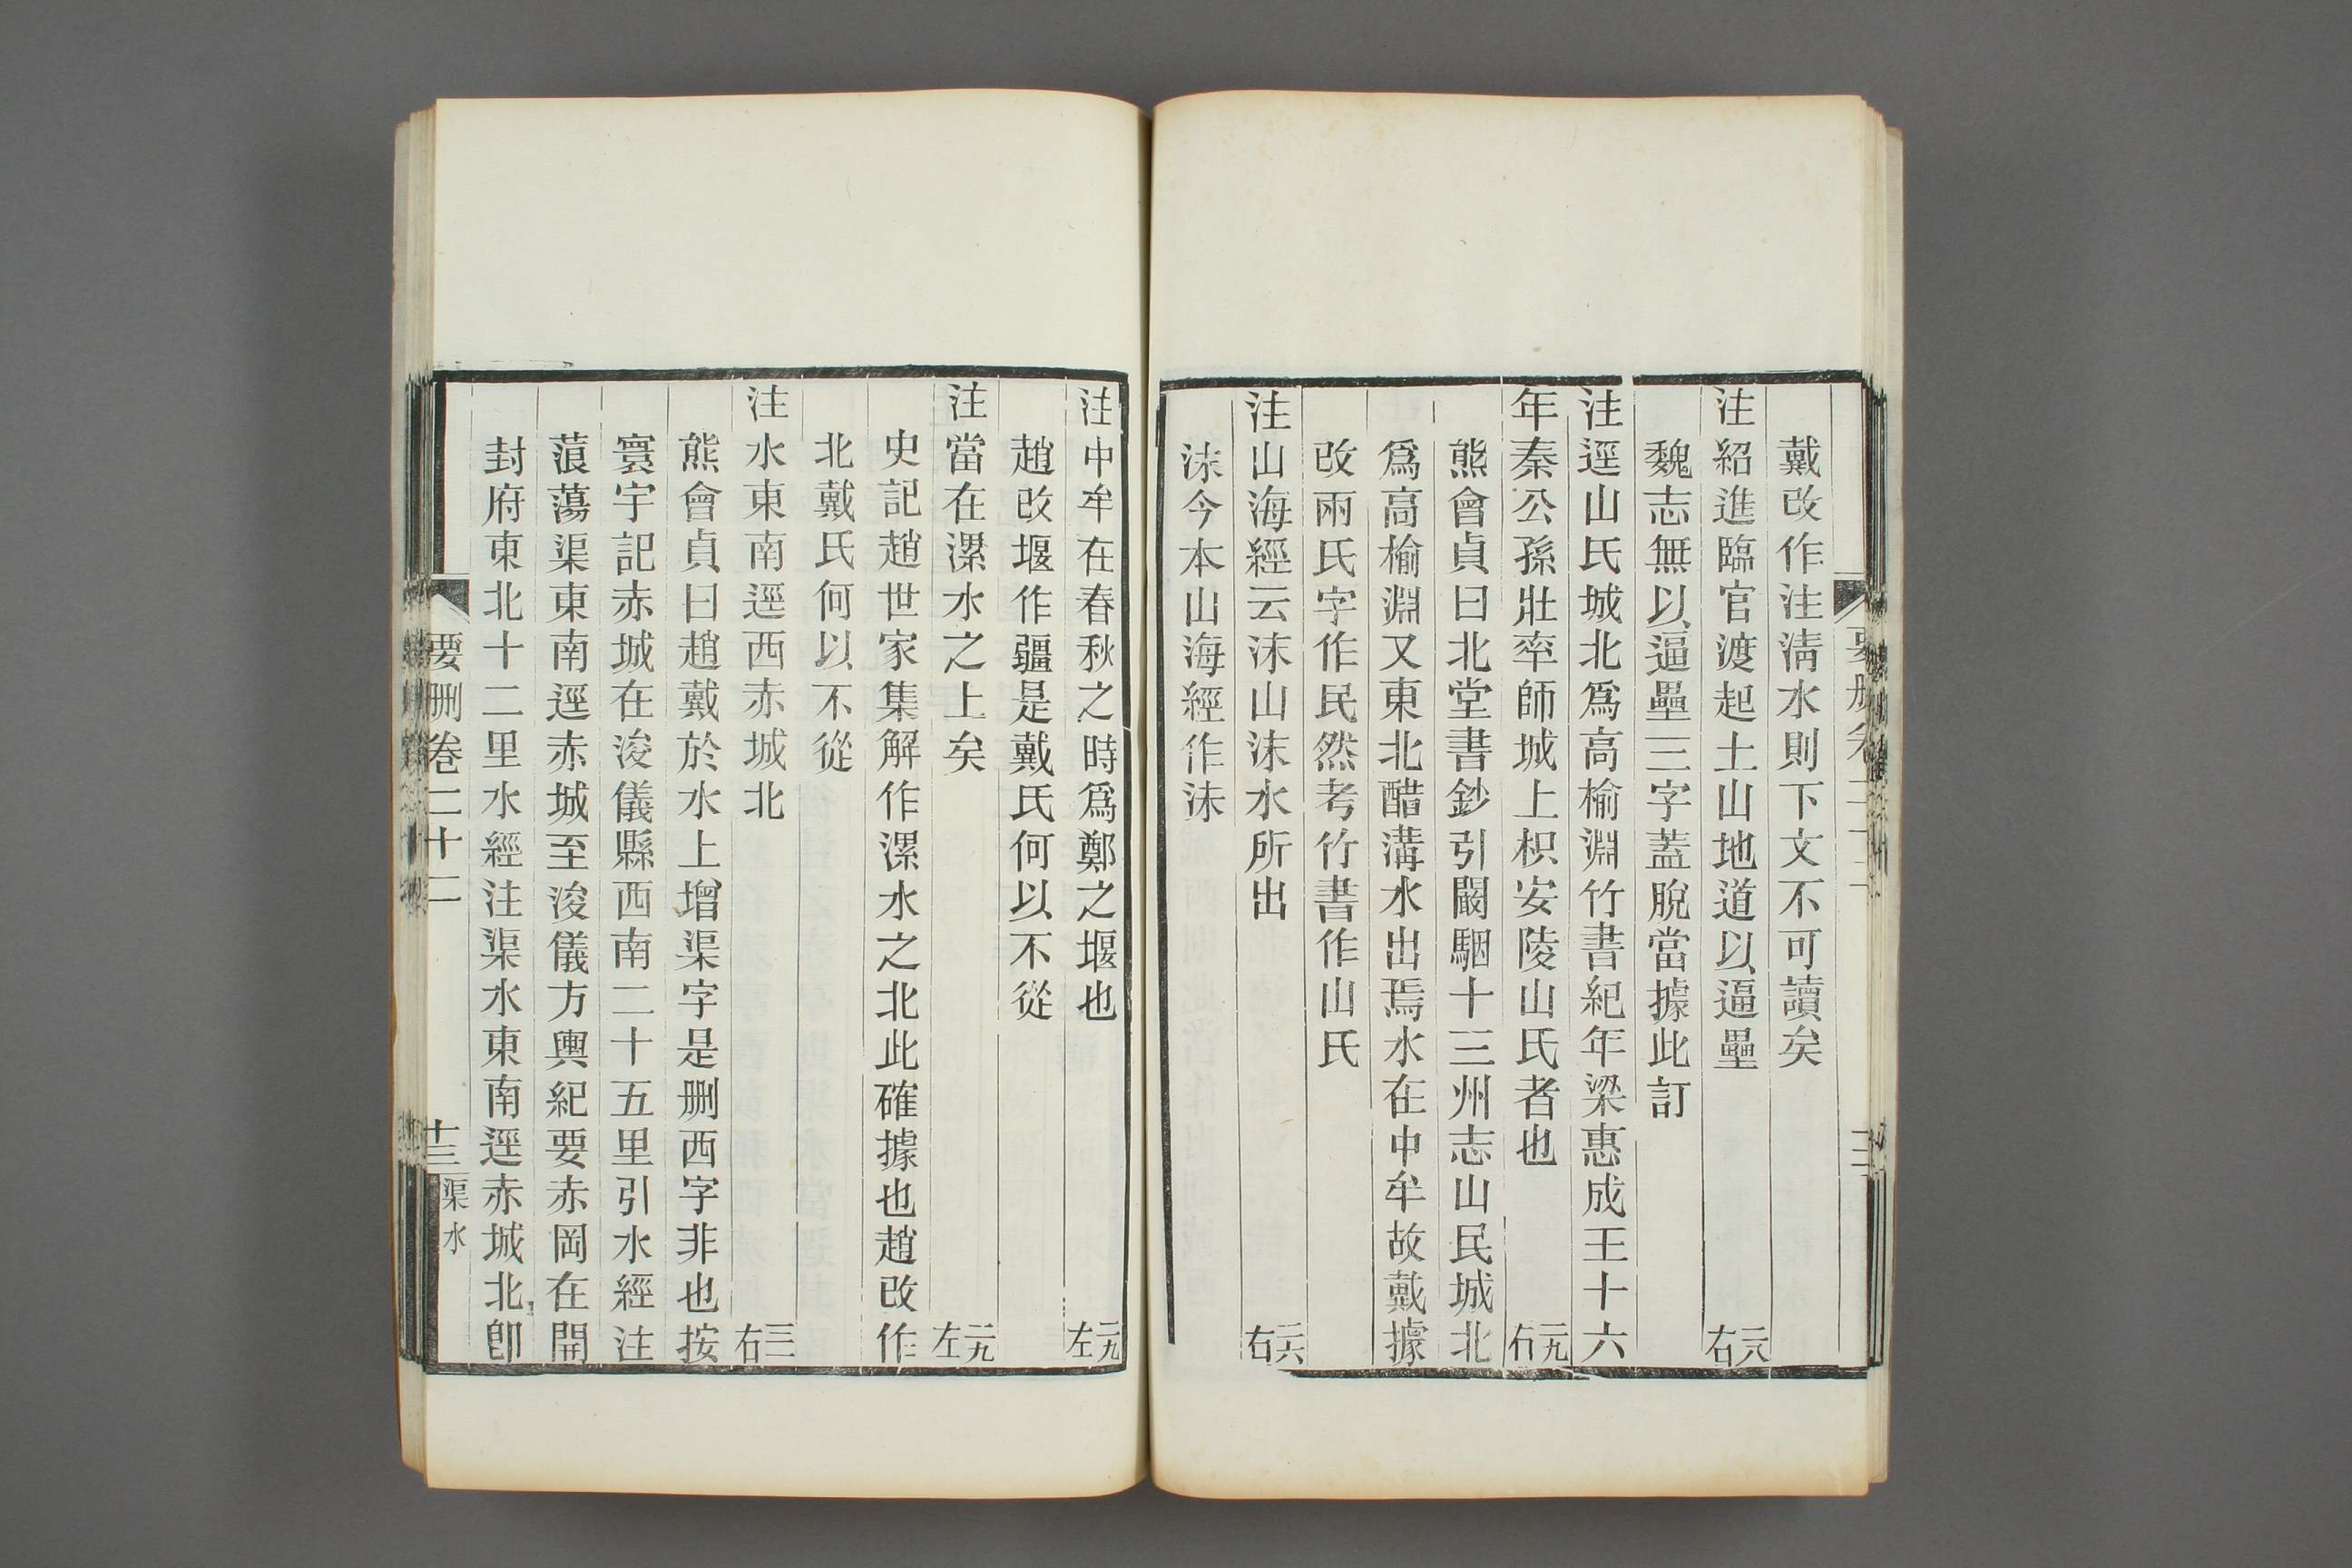 戴改作注淸水則下文不可讀矣
注紹進臨官渡起土山地道以逼壘 二八右
魏志無以逼壘三字蓋脫當據此訂
注逕山氏城北爲高榆淵竹書紀年梁惠成王十六
年秦公孫壯率師城上枳安陵山氏者也 二九右
熊會貞曰北堂書鈔引闞駰十三州志山民城北
爲高榆淵又東北醋溝水出焉水在中牟故戴據
改兩氏字作民然考竹書作山氏
注山海經云沫山沫水所出 二六右
沫今本山海經作沫
注中牟在春秋之時爲鄭之堰也 二九左
趙改堰作疆是戴氏何以不從
注當在漯水之上矣 二九左
史記趙世家集解作漯水之北此確據也趙改作
北戴氏何以不從
注水東南逕西赤城北 三一右
熊會貞曰趙戴於水上增渠字是删西字非也按
寰宇記赤城在浚儀縣西南二十五里引水經注
蒗蕩渠東南逕赤城至浚儀方輿紀要赤岡在開
封府東北十二里水經注渠水東南逕赤城北卽
要删卷二十二 十三 渠水